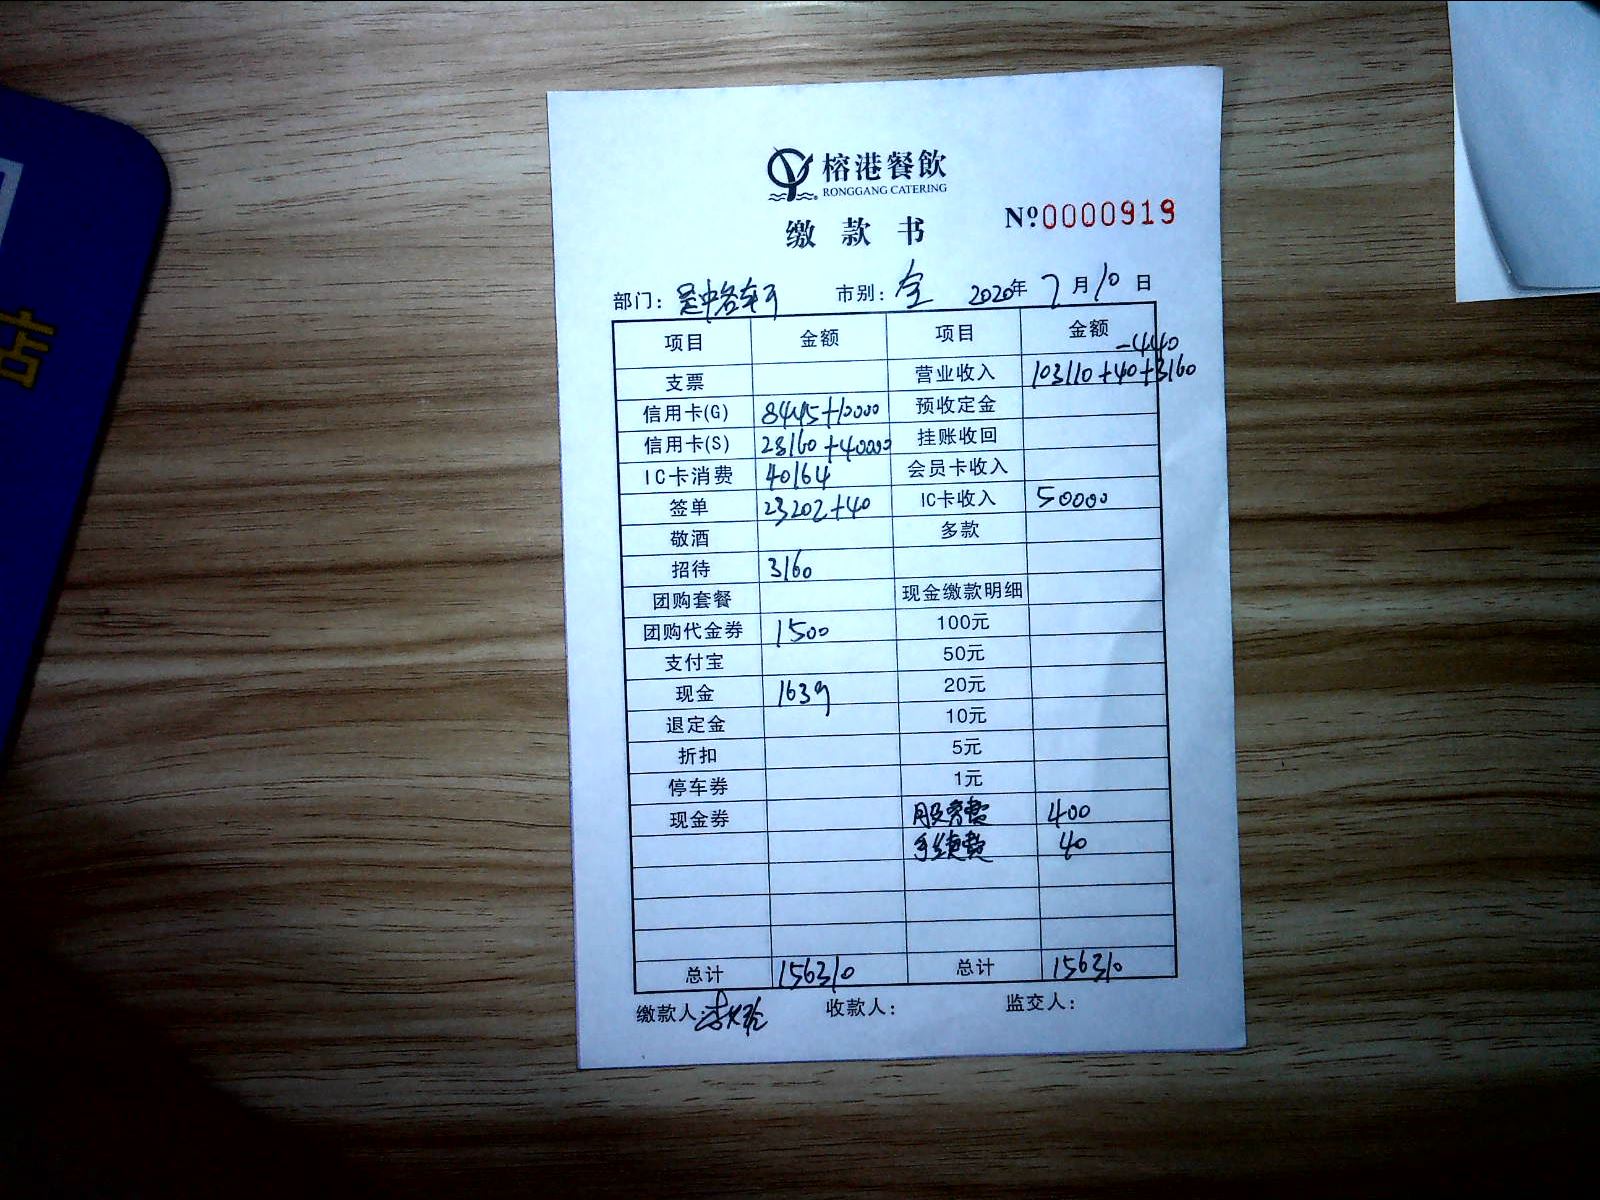 店
榕港餐飲
RONGGANG CATERING
缴款书
Nº0000919
部门: 市别: 全 2020年7月10日
项目 金额 项目 金额
-440
支票 营业收入 103110+40+3160
信用卡(G) 8445+10000 预收定金
信用卡(S) 28160+40000 挂账收回
IC卡消费 40164 会员卡收入
签单 23202+40 IC卡收入 50000
敬酒 多款
招待 3160
团购套餐 现金缴款明细
团购代金券 1500 100元
支付宝 50元
现金 1639 20元
退定金 10元
折扣 5元
停车券 1元
现金券 服务费 400
手续费 40
总计 156310 总计 156310
缴款人: 收款人: 监交人: